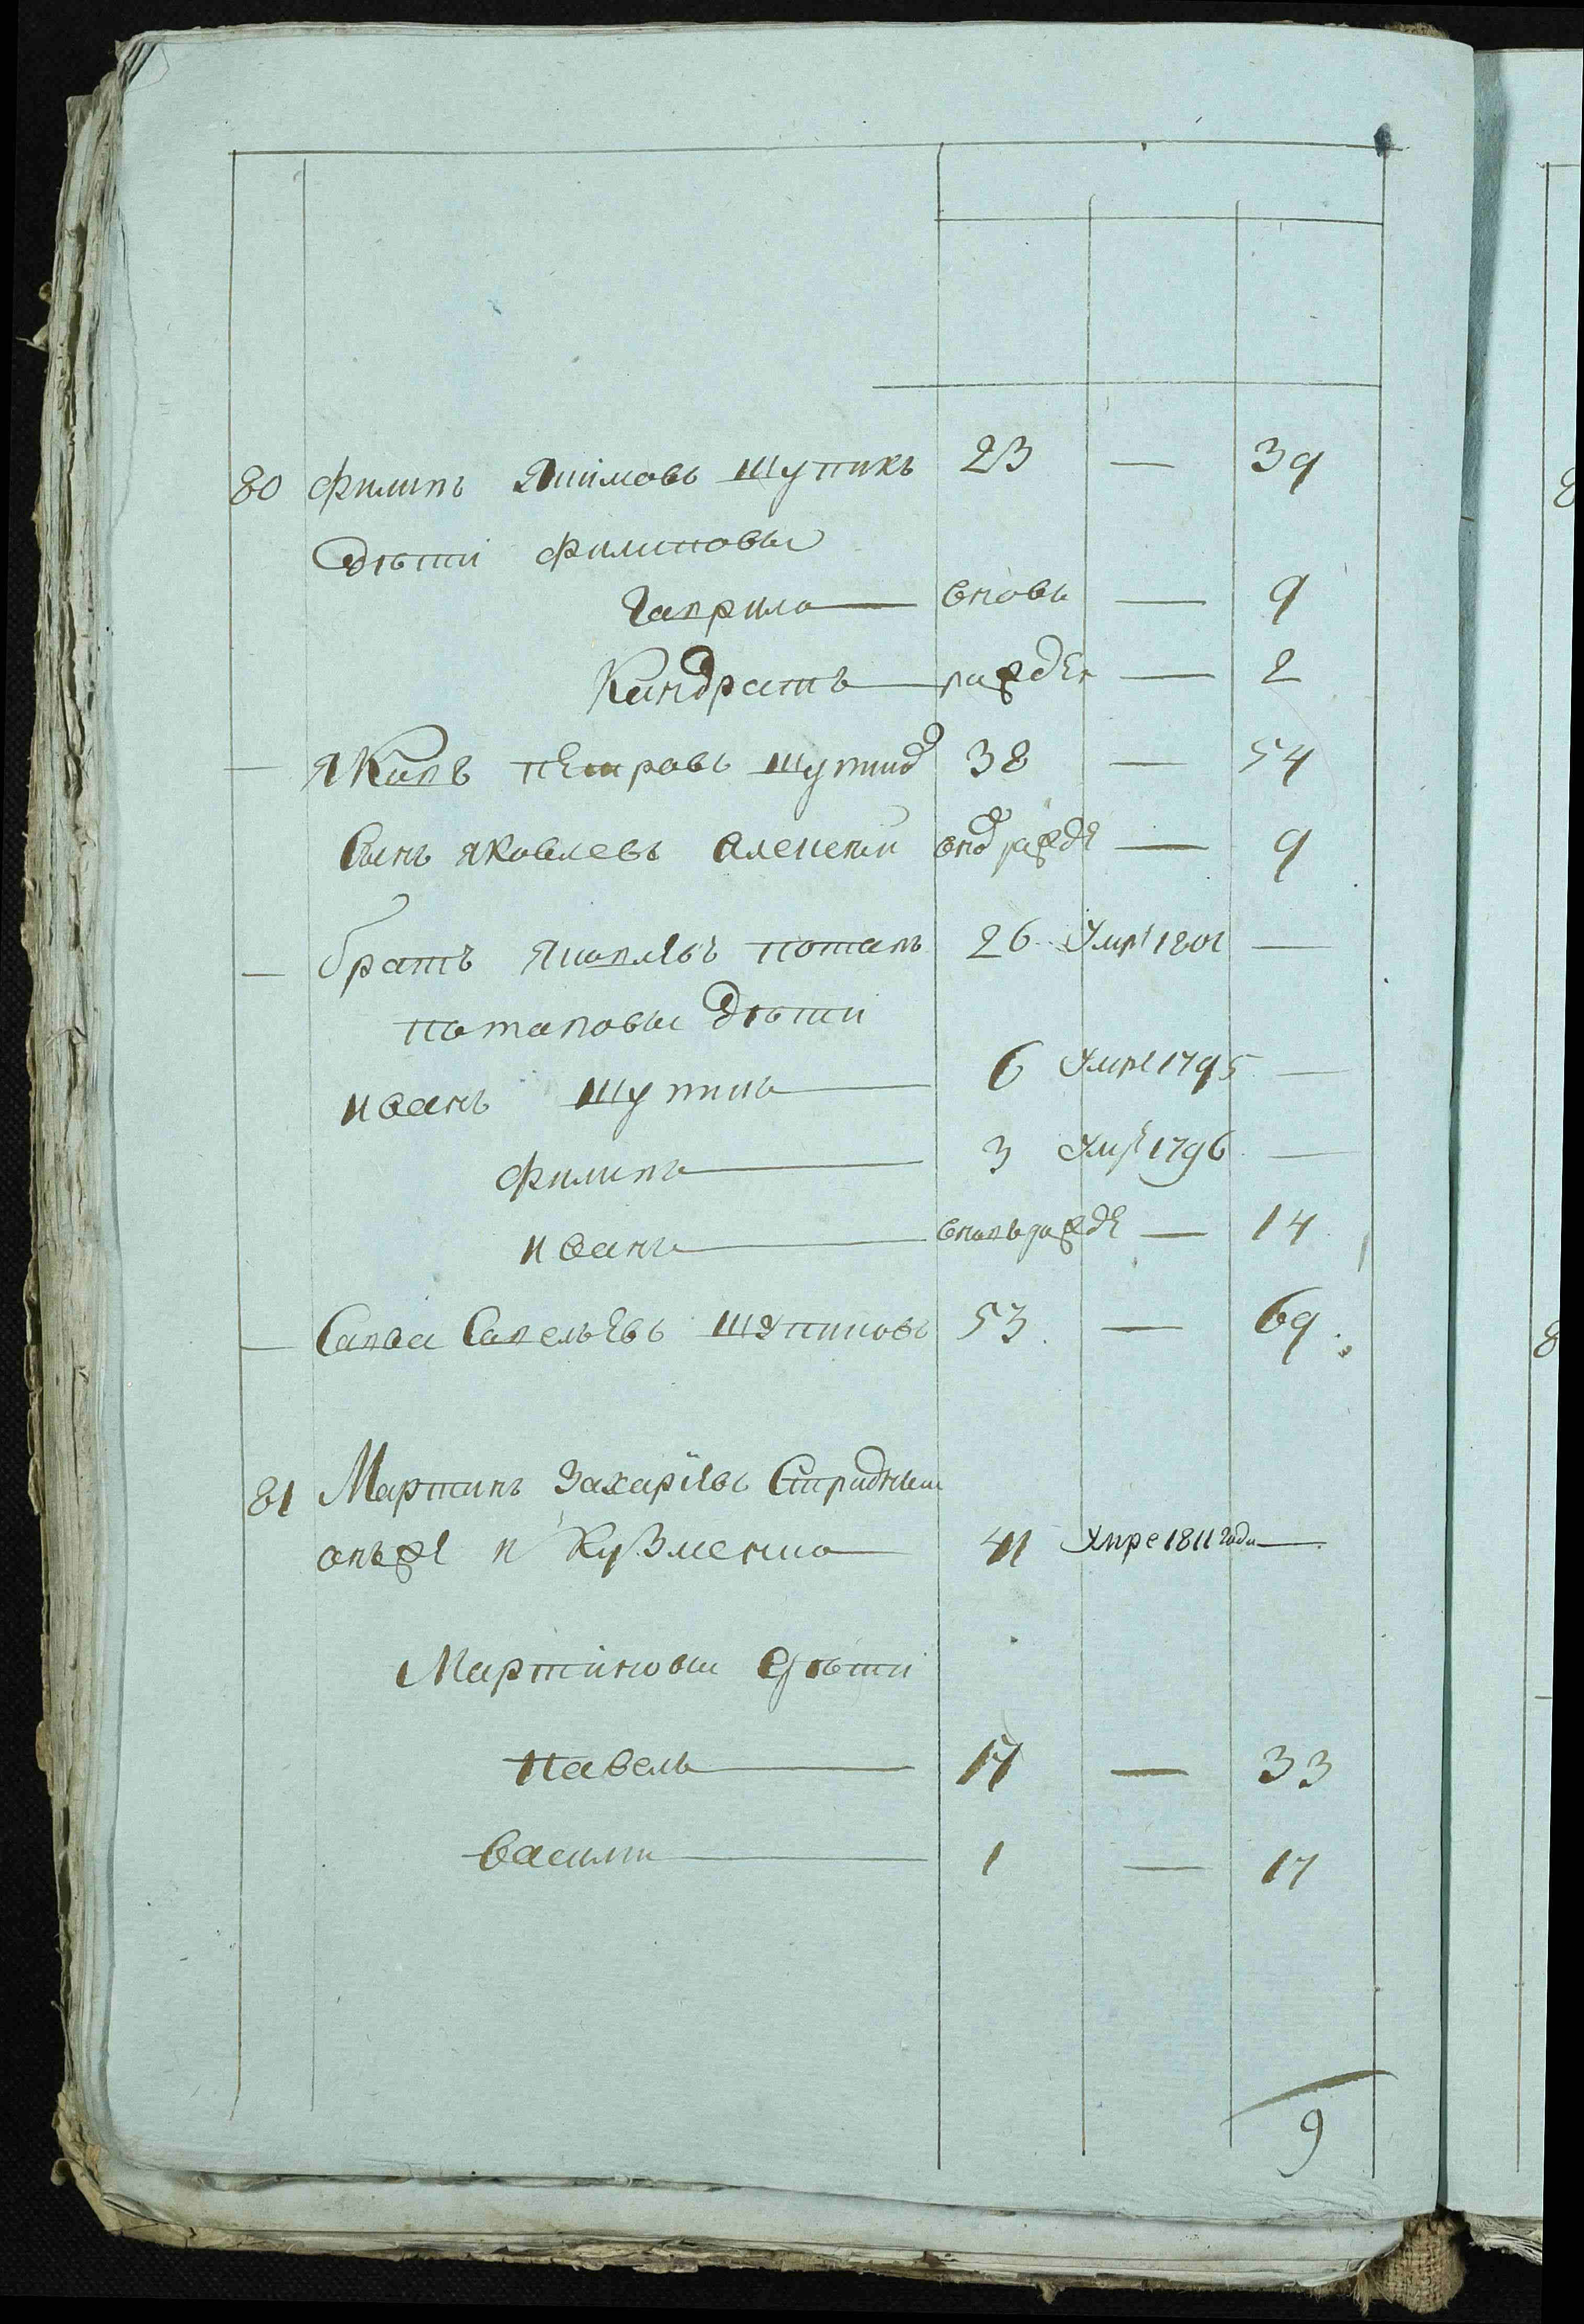 80 филипъ Якимовъ шупикъ 23 — 39
Дѣти филиповы
Гаврило — вновь — 9
Кандратъ — рожден — 2
— яковъ петровъ шупик 38 — 54
Сынъ яковлевъ алексѣй внов рожде — 9
— братъ яковлевъ потапъ 26 Умре 1801 —
потаповы дѣти
иванъ шупикъ — 6 Умре 1795 —
филипъ — 3 Умре 1796 —
иванъ — вновь рожде — 14
— Савва Савельевъ шупиковъ 53 — 69
81 Мартинъ Захарьевъ
онъже и Кузменко — 41 Умре 1811 года —
Мартиновы дѣти
павелъ — 17 — 33
василий — 1 — 17
9
8
8